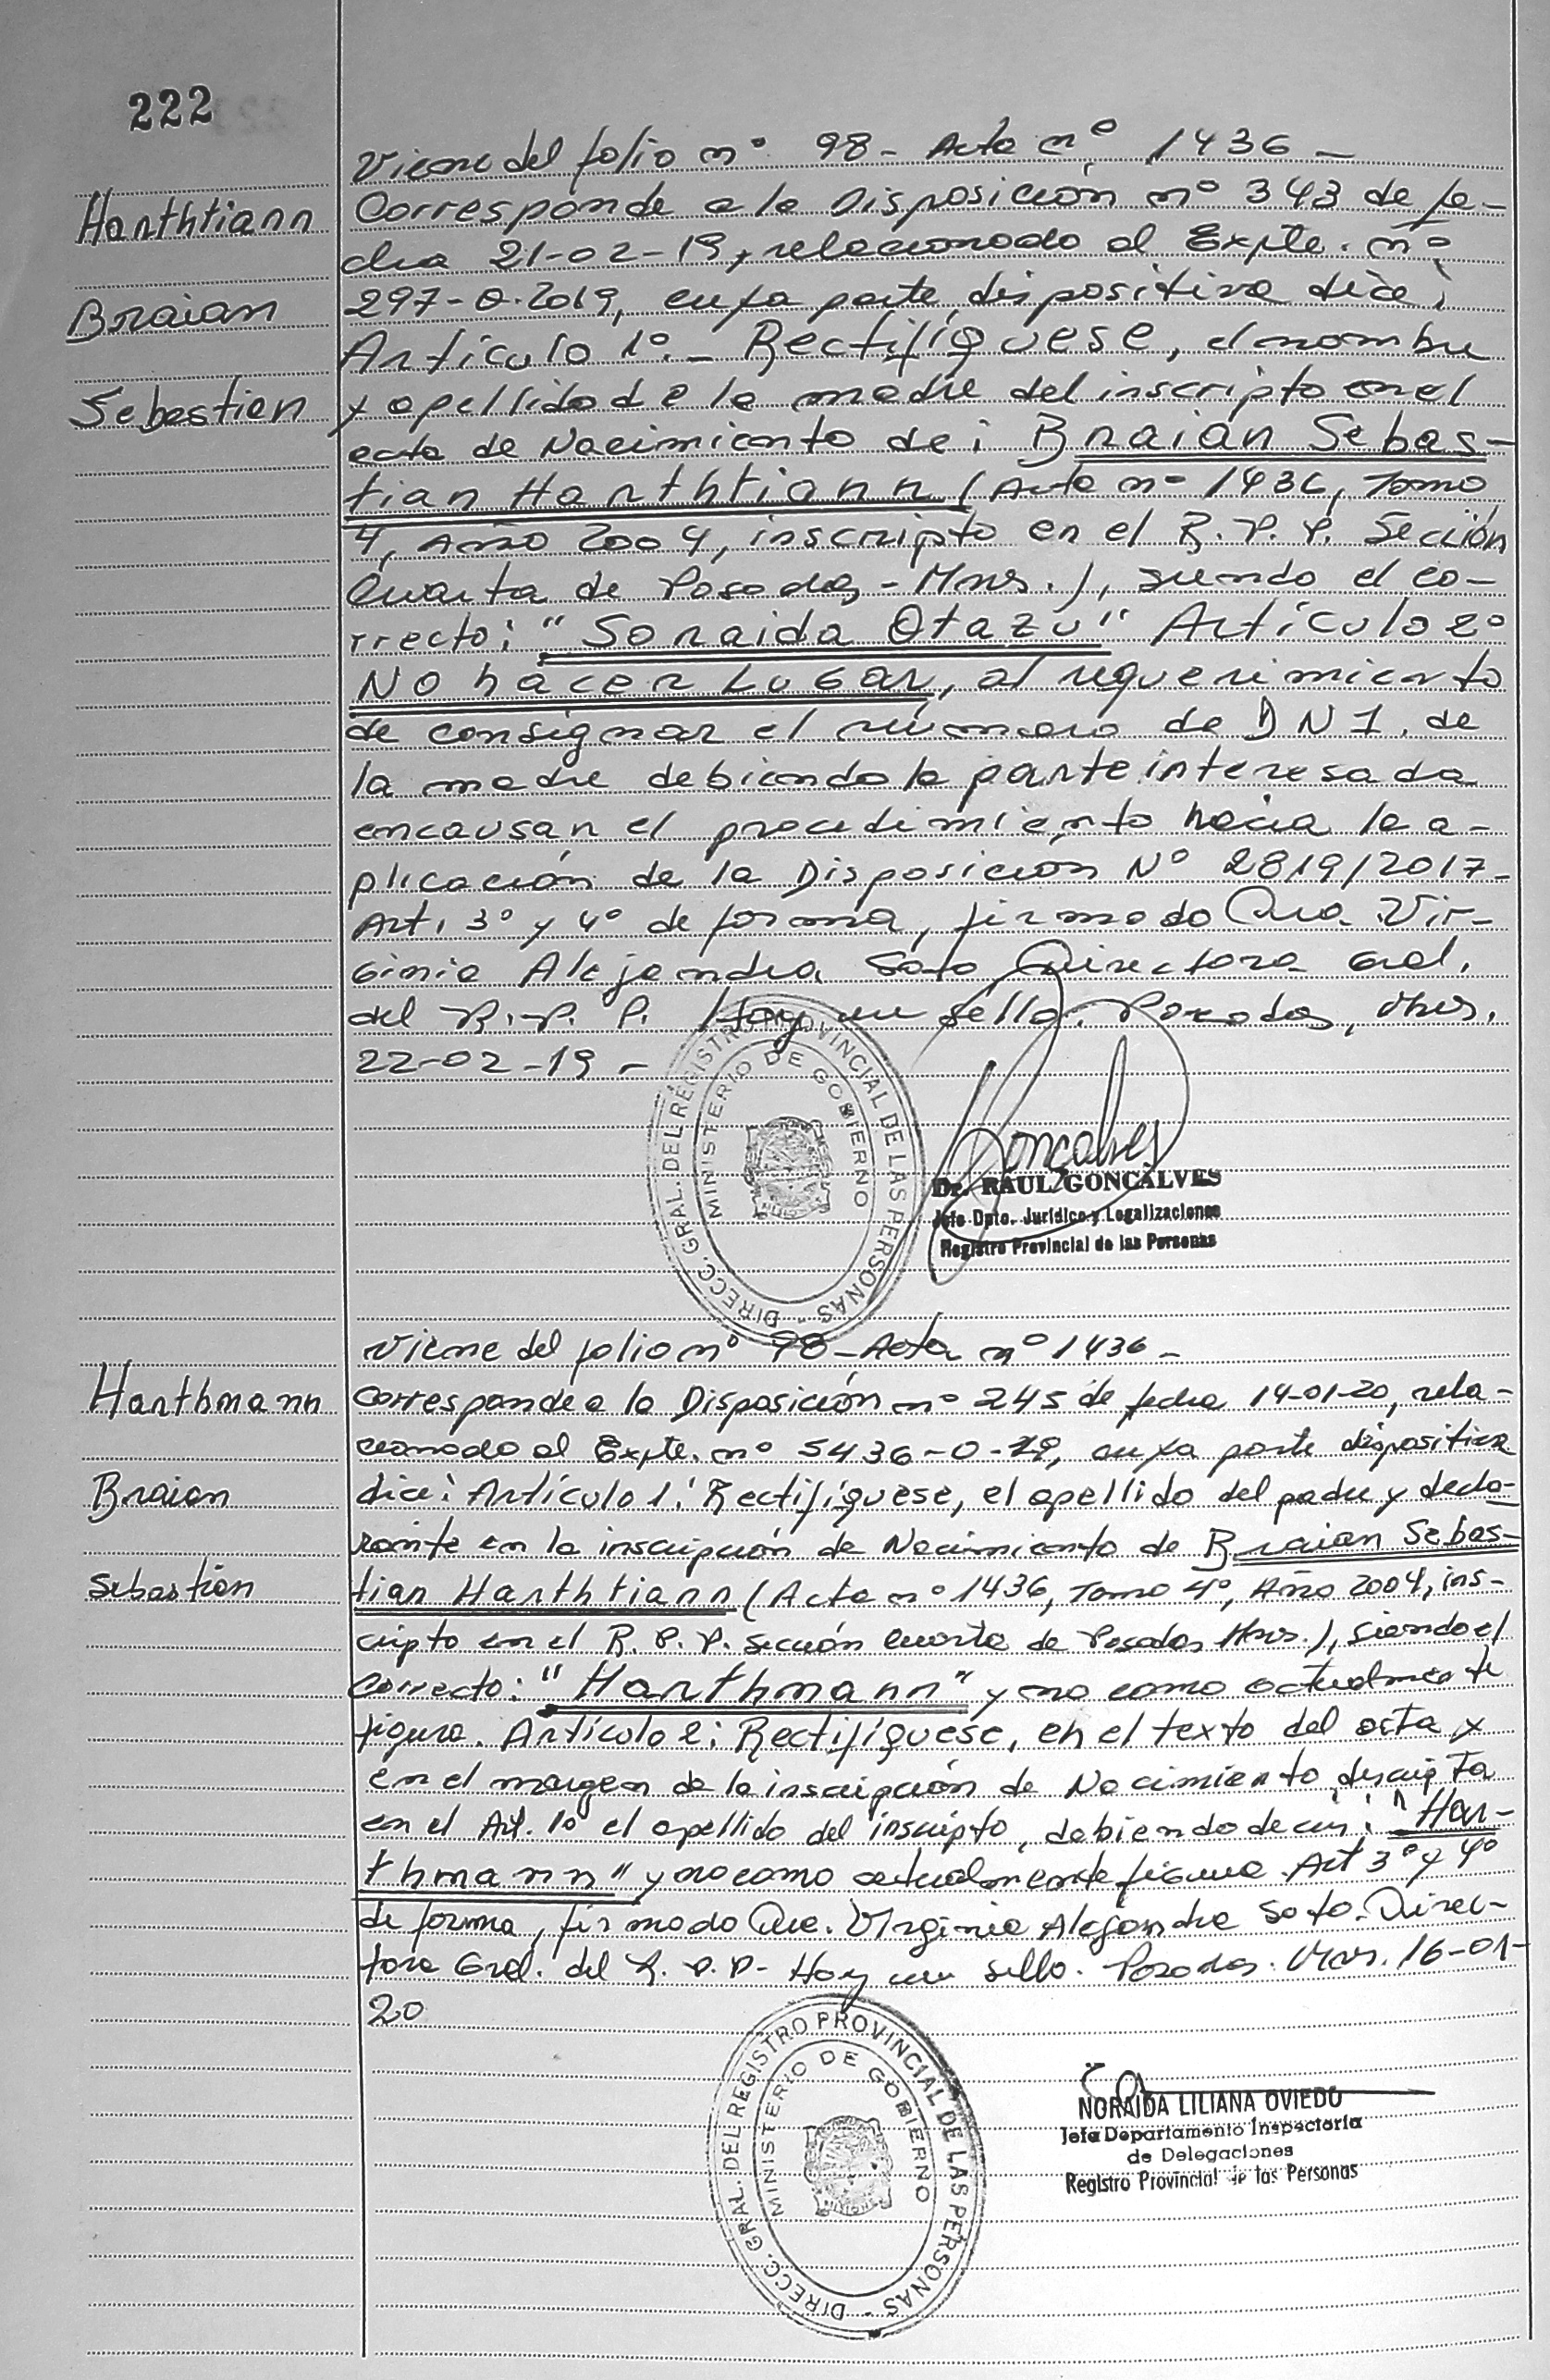 222
Viene del folio nº 98 - Acta nº 1436 -
Harthtiann
Corresponde a la Disposición nº 343 de fe-
cha 21-02-19, relacionado al Expte. nº
Braian
297-O-2019, cuya parte dispositiva dice:
Artículo 1º.- Rectifíquese, el nombre
Sebastian
y apellido de la madre del inscripto en el
acta de Nacimiento de: Braian Sebas-
tian Harthtiann (Acta nº 1436, Tomo
4, Año 2004, inscripto en el R.P.P. Sección
Cuarta de Posadas - Mnes.), siendo el co-
rrecto: "Soraida Otazu" Artículo 2º
No hacer Lugar, al requerimiento
de consignar el número de DNI. de
la madre debiendo la parte interesada
encausar el procedimiento hacia la a-
plicación de la Disposición Nº 2819/2017-
Art. 3º y 4º de forma, firmado Vir-
ginia Alejandra Soto Directora Gral.
del R.P.P. Hay un sello. Posadas, Mnes.
22-02-19 -
DIRECC. GRAL. DEL REGISTRO PROVINCIAL DE LAS PERSONAS -
MINISTERIO DE GOBIERNO
Goncalves
Dr. RAUL GONCALVES
Jefe Dpto. Jurídico y Legalizaciones
Registro Provincial de las Personas
Viene del folio nº 98 - Acta nº 1436 -
Harthmann
Corresponde a la Disposición nº 245 de fecha 14-01-20, rela-
cionado al Expte. nº 5436-O-19, cuya parte dispositiva
Braian
dice: Artículo 1: Rectifíquese, el apellido del padre y decla-
rante en la inscripción de Nacimiento de Braian Sebas-
Sebastián
tian Harthtiann (Acta nº 1436, Tomo 4º, Año 2004, ins-
cripto en el R.P.P. sección cuarta de Posadas Mnes.), siendo el
correcto: "Harthmann" y no como actualmente
figura. Artículo 2: Rectifíquese, en el texto del acta y
en el margen de la inscripción de Nacimiento, descripta
en el Art. 1º el apellido del inscripto, debiendo decir: "Har-
thmann" y no como actualmente figura. Art 3º y 4º
de forma, firmado Virginia Alejandra Soto. Direc-
tora Gral. del R.P.P- Hay un sello. Posadas. Mnes. 16-01-
20
DIRECC. GRAL. DEL REGISTRO PROVINCIAL DE LAS PERSONAS -
MINISTERIO DE GOBIERNO
NORAIDA LILIANA OVIEDO
Jefa Departamento Inspectoría
de Delegaciones
Registro Provincial de las Personas